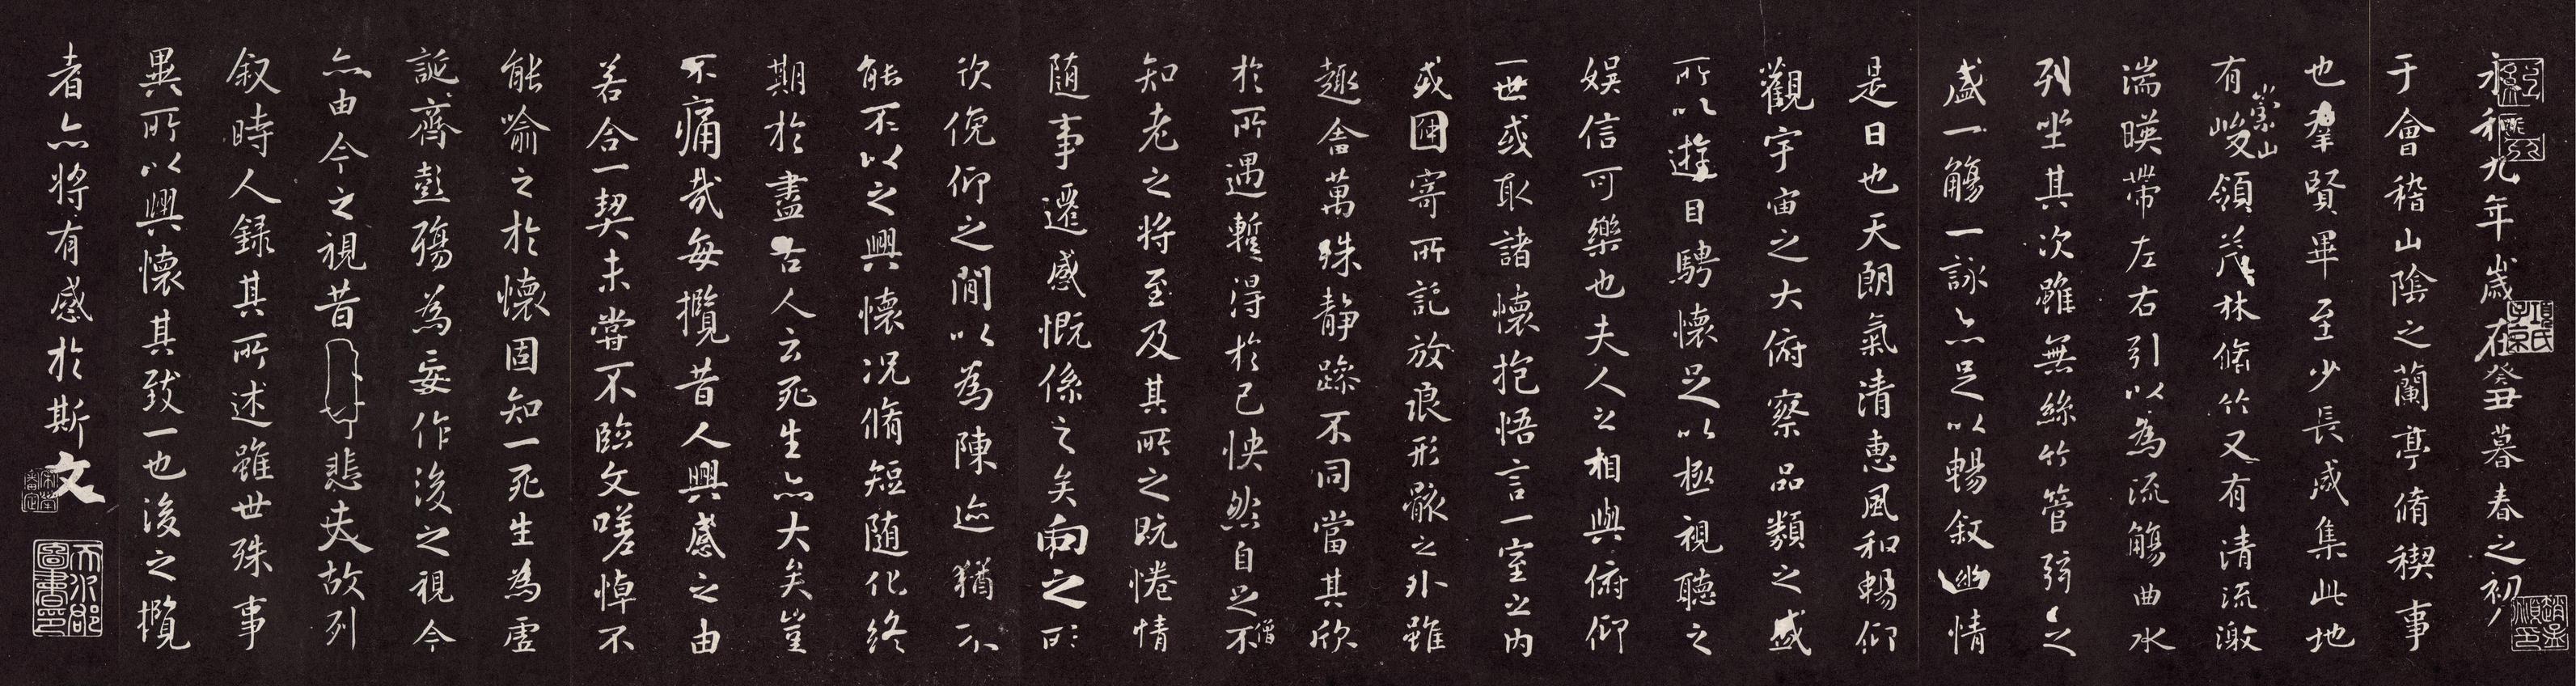 永和九年歲在癸丑暮春之初會
于會稽山陰之蘭亭脩稧事
也羣賢畢至少長咸集此地
有崇山峻領茂林脩竹又有清流激
湍暎帶左右引以為流觴曲水
列坐其次雖無絲竹管弦之
盛一觴一詠亦足以暢敘幽情
是日也天朗氣清惠風和暢仰
觀宇宙之大俯察品類之盛
所以遊目騁懷足以極視聽之
娛信可樂也夫人之相與俯仰
一世或取諸懷抱悟言一室之內
或因寄所託放浪形骸之外雖
趣舍萬殊靜躁不同當其欣
於所遇蹔得於己怏然自足不
僧
知老之將至及其所之既惓情
隨事遷感慨係之矣向之所
欣俛仰之閒以為陳迹猶不
能不以之興懷況脩短隨化終
期於盡古人云死生亦大矣豈
不痛哉每攬昔人興感之由
若合一契未嘗不臨文嗟悼不
能喻之於懷固知一死生為虛
誕齊彭殤為妄作後之視今
亦由今之視昔悲夫故列
敘時人錄其所述雖世殊事
異所以興懷其致一也後之攬
者亦將有感於斯文
項氏子京
趙孟頫印
天水郡圖書印